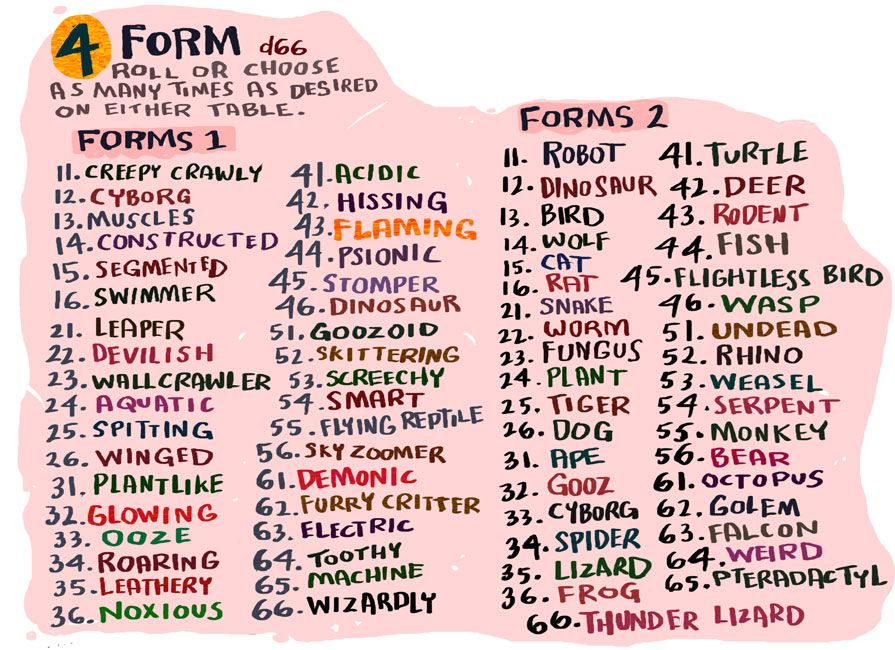 4 FORM d66
ROLL OR CHOOSE
AS MANY TIMES AS DESIRED
ON EITHER TABLE.
FORMS 1
11. CREEPY CRAWLY
12. CYBORG
13. MUSCLES
14. CONSTRUCTED
15. SEGMENTED
16. SWIMMER
21. LEAPER
22. DEVILISH
23. WALLCRAWLER
24. AQUATIC
25. SPITTING
26. WINGED
31. PLANTLIKE
32. GLOWING
33. OOZE
34. ROARING
35. LEATHERY
36. NOXIOUS
41. ACIDIC
42. HISSING
43. FLAMING
44. PSIONIC
45. STOMPER
46. DINOSAUR
51. GOOZOID
52. SKITTERING
53. SCREECHY
54. SMART
55. FLYING REPTILE
56. SKY ZOOMER
61. DEMONIC
62. FURRY CRITTER
63. ELECTRIC
64. TOOTHY
65. MACHINE
66. WIZARDLY
FORMS 2
11. ROBOT
12. DINOSAUR
13. BIRD
14. WOLF
15. CAT
16. RAT
21. SNAKE
22. WORM
23. FUNGUS
24. PLANT
25. TIGER
26. DOG
31. APE
32. GOOZ
33. CYBORG
34. SPIDER
35. LIZARD
36. FROG
41. TURTLE
42. DEER
43. RODENT
44. FISH
45. FLIGHTLESS BIRD
46. WASP
51. UNDEAD
52. RHINO
53. WEASEL
54. SERPENT
55. MONKEY
56. BEAR
61. OCTOPUS
62. GOLEM
63. FALCON
64. WEIRD
65. PTERADACTYL
66. THUNDER LIZARD